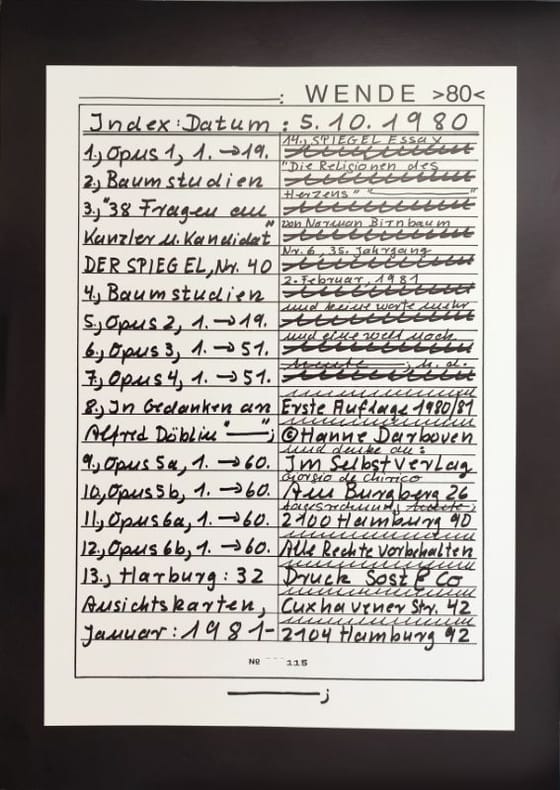 : WENDE >80<
Index: Datum : 5.10.1980
1., Opus 1, 1. → 19.
2., Baumstudien
3., "38 Fragen an
Kanzler u. Kandidat"
DER SPIEGEL, Nr. 40
4., Baumstudien
5., Opus 2, 1. → 19.
6., Opus 3, 1. → 51.
7., Opus 4, 1. → 51.
8., In Gedanken an
Alfred Döblin "——";
9., Opus 5a, 1. → 60.
10., Opus 5b, 1. → 60.
11., Opus 6a, 1. → 60.
12., Opus 6b, 1. → 60.
13., Harburg: 32
Ansichtskarten,
Januar: 1981-
14., SPIEGEL Essay
"Die Religionen des
Herzens" "——"
von Norman Birnbaum
Nr. 6, 35. Jahrgang
2. Februar, 1981
und keine worte mehr
und eine welt noch
heute ——; h.d.
Erste Auflage 1980/81
© Hanne Darboven
und denke an:
Im Selbstverlag
giorgio de chirico
Am Burgberg 26
tagesrechnung, heute;
2100 Hamburg 90
Alle Rechte vorbehalten
Druck Sost & Co
Cuxhavener Str. 42
2104 Hamburg 92
№ 115
——;